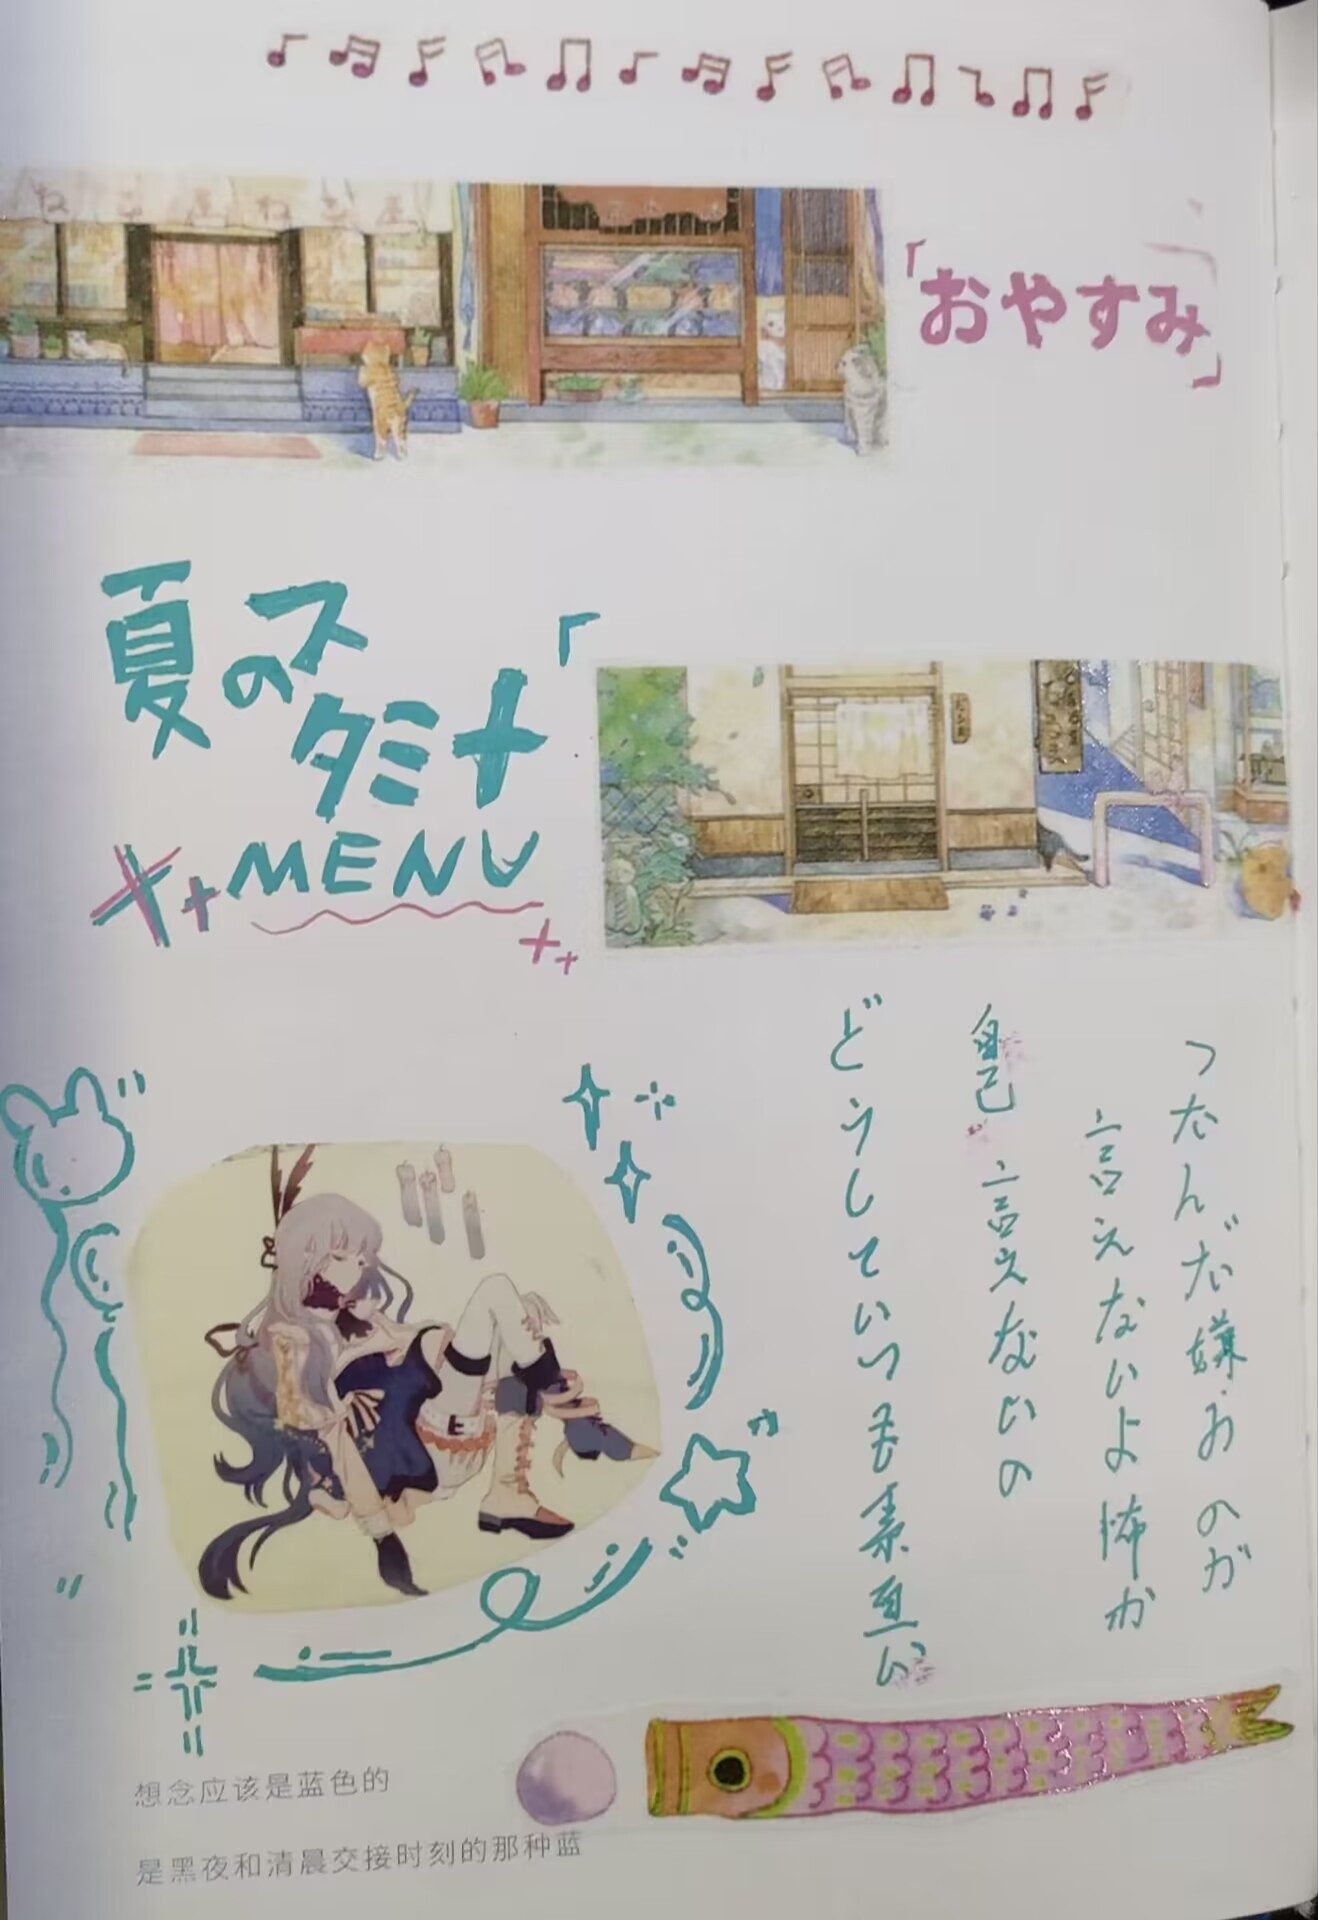 「おやすみ」
夏のス
タミナ「
MENU
つたんだ嫌・おのが
言えないよ怖か
自己言えないの
どうしていつも素直い
想念应该是蓝色的
是黑夜和清晨交接时刻的那种蓝